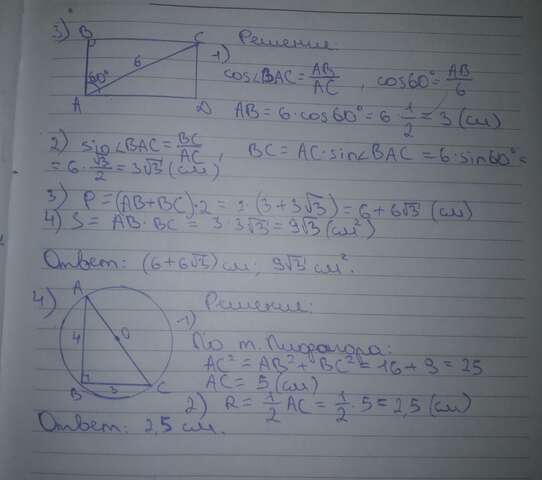 3) B C Решение:
6 60° A D
1) cos∠BAC = AB/AC , cos60° = AB/6
AB = 6·cos60° = 6·1/2 = 3 (см)
2) sin∠BAC = BC/AC , BC = AC·sin∠BAC = 6·sin60° =
= 6·√3/2 = 3√3 (см)
3) P = (AB+BC)·2 = 2·(3+3√3) = 6+6√3 (см)
4) S = AB·BC = 3·3√3 = 9√3 (см²)
Ответ: (6+6√3) см; 9√3 см².
4) A Решение:
O 4 B 3 C
1) По т. Пифагора:
AC² = AB² + BC² = 16 + 9 = 25
AC = 5 (см)
2) R = 1/2 AC = 1/2·5 = 2,5 (см)
Ответ: 2,5 см.